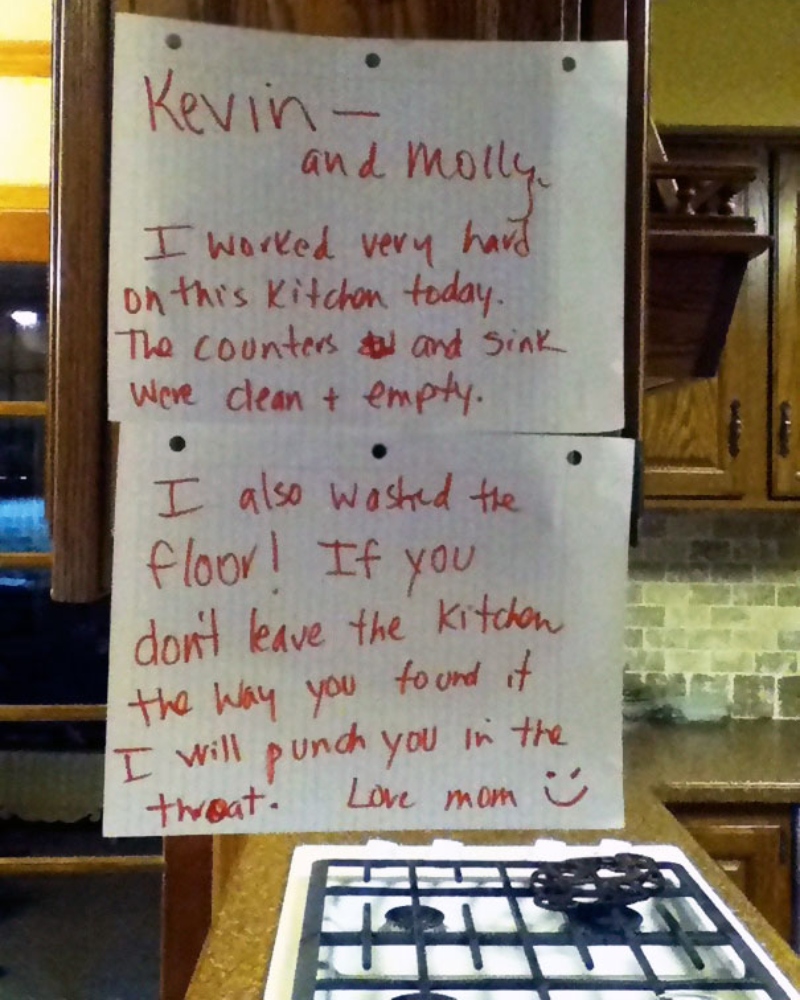 Kevin —
and Molly.
I worked very hard
on this Kitchen today.
The counters and sink
were clean + empty.
I also washed the
floor! If you
don't leave the kitchen
the way you found it
I will punch you in the
throat. Love mom :)